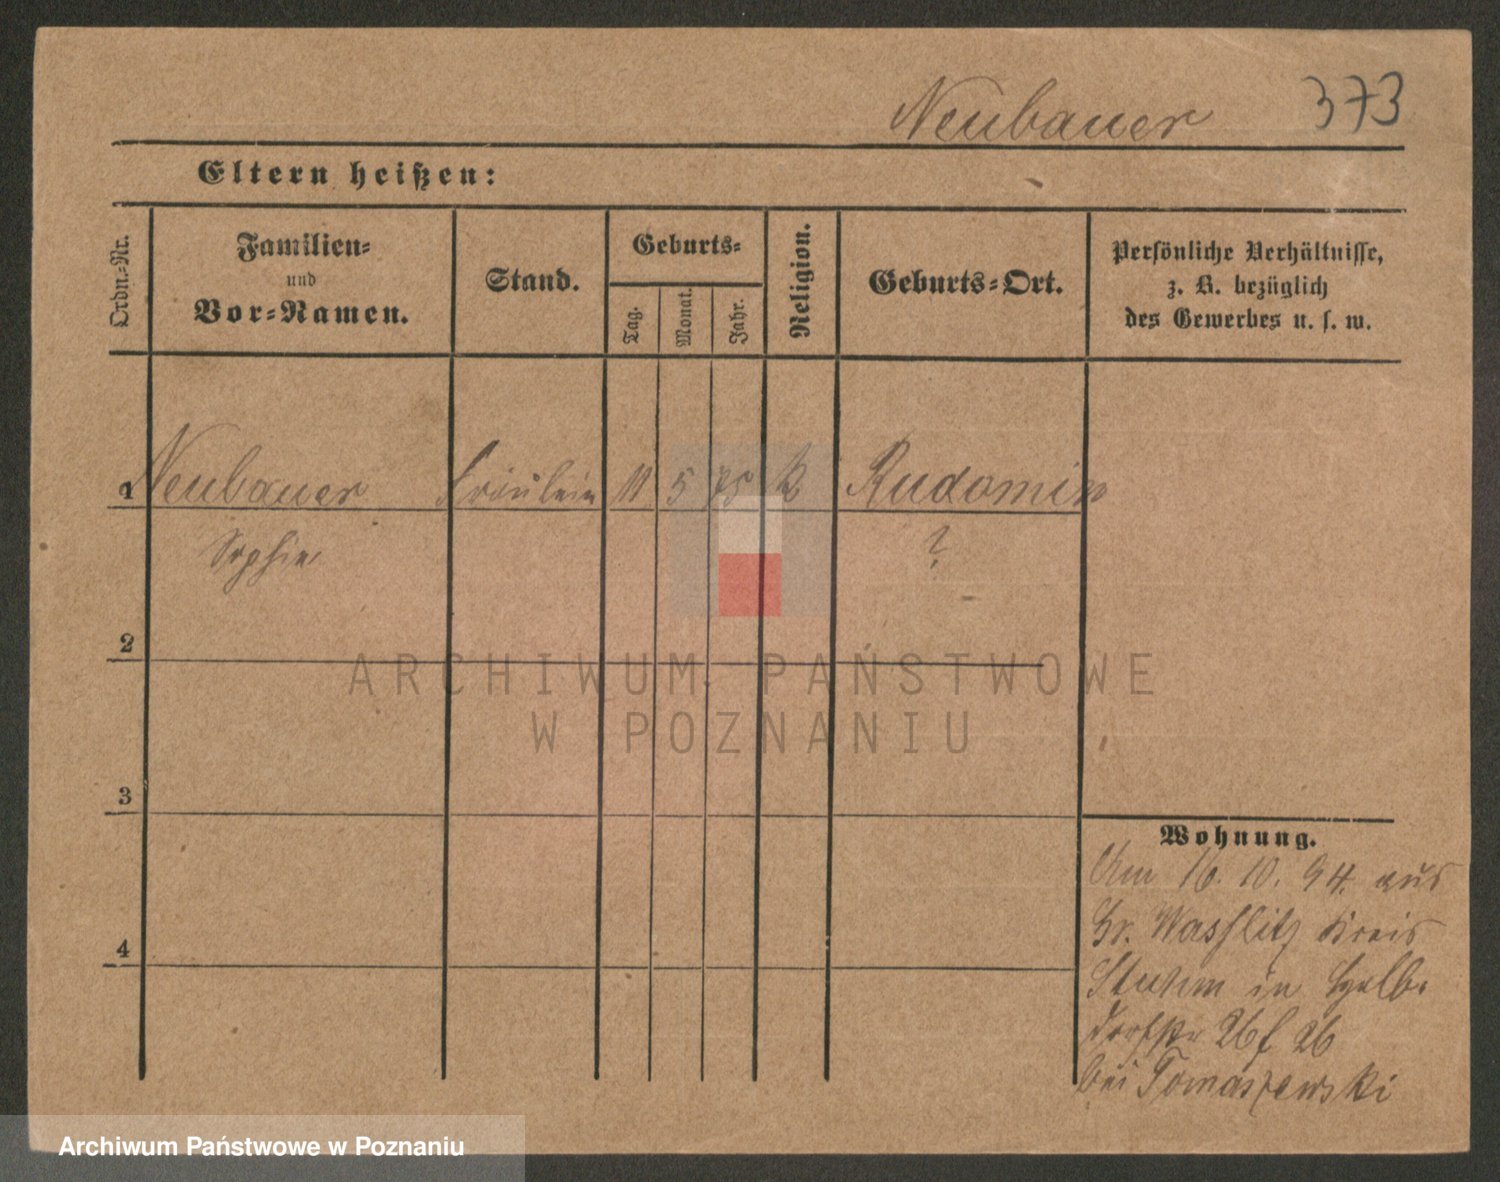 Neubauer 373
Eltern heißen:
Ordn.-Nr.
Familien-
und
Vor-Namen.
Stand.
Geburts-
Tag.
Monat.
Jahr.
Religion.
Geburts-Ort.
Persönliche Verhältnisse,
z. B. bezüglich
des Gewerbes u. s. w.
1 Neubauer Fräulein 11 5 75 k Rudomin
Sophie ?
2
3
4
Wohnung.
Am 16. 10. 94. aus
Gr. Kreis
Stuhm in Halb-
dorfstr 26 26
bei Tomaszewski
ARCHIWUM PAŃSTWOWE
W POZNANIU
Archiwum Państwowe w Poznaniu